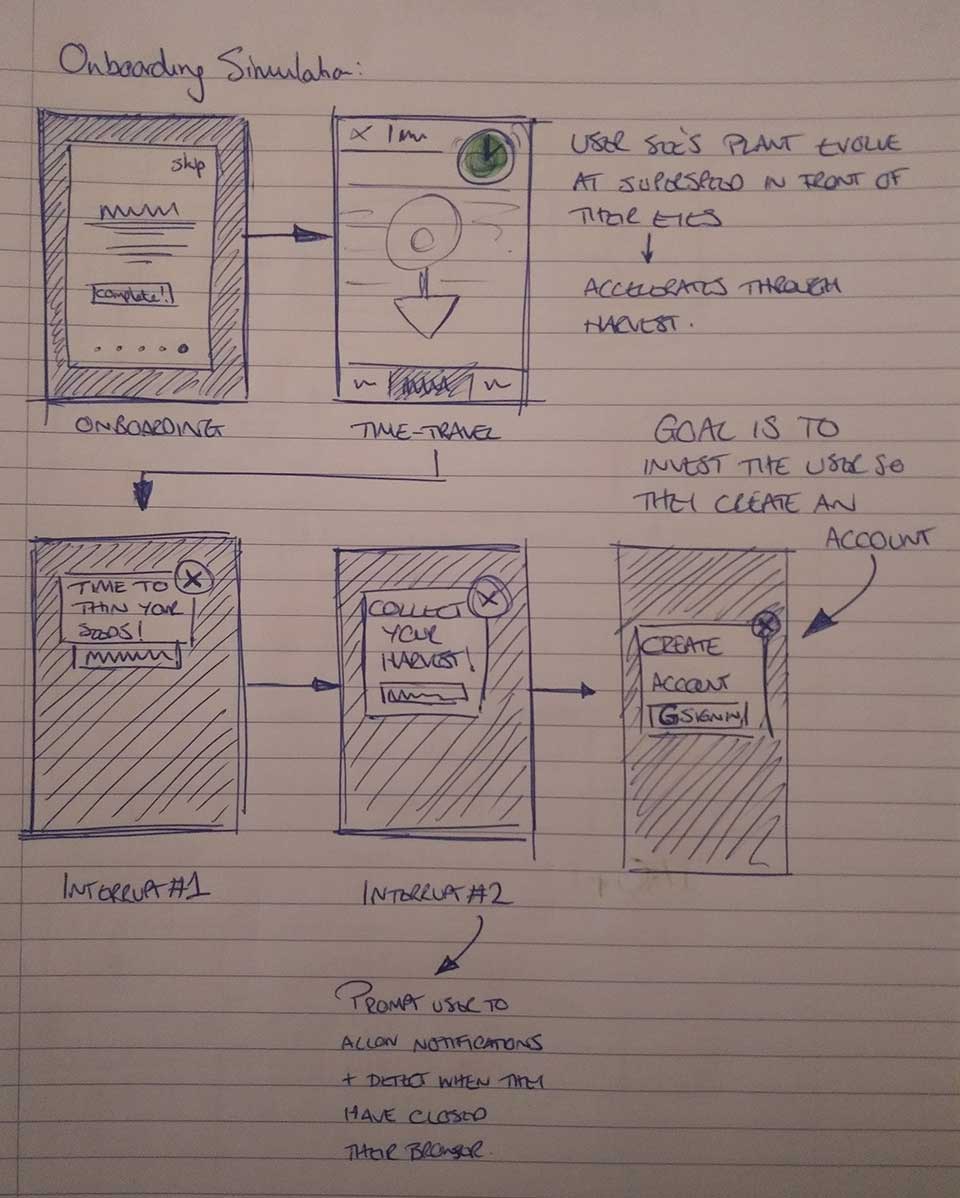 Onboarding Simulation:
skip
complete!
ONBOARDING
TIME-TRAVEL
USER SEE'S PLANT EVOLVE
AT SUPERSPEED IN FRONT OF
THEIR EYES
ACCELERATES THROUGH
HARVEST.
GOAL IS TO
INVEST THE USER SO
THEY CREATE AN
ACCOUNT
TIME TO
THIN YOUR
SEEDS!
COLLECT
YOUR
HARVEST!
CREATE
ACCOUNT
G SIGN IN
INTERRUPT #1
INTERRUPT #2
PROMPT USER TO
ALLOW NOTIFICATIONS
+ DETECT WHEN THEY
HAVE CLOSED
THEIR BROWSER.